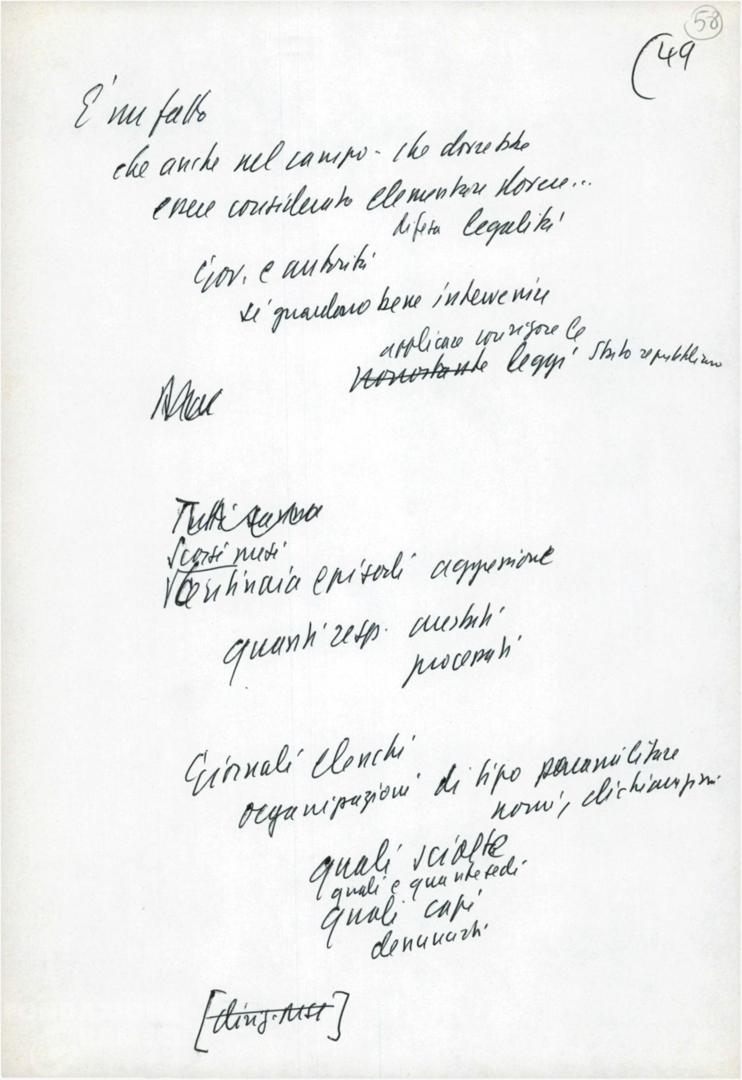 58
(49
E' un fatto
che anche nel campo - che dovrebbe
essere considerato elementare dovere...
difesa legalità
Gov. e autorità
si guardano bene intervenire
applicare con rigore le
nonostante leggi Stato repubblicano
Tutti
Scorsi mesi
Centinaia episodi aggressione
quanti resp. arrestati
processati
Giornali elenchi
organizzazioni di tipo paramilitare
nomi, dichiarazioni
quali sciolte
quali e quante sedi
quali capi
denunciati
[dirig. MSI]